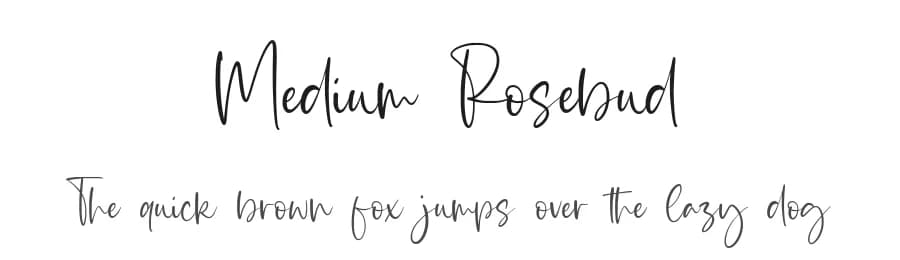 Medium Rosebud
The quick brown fox jumps over the lazy dog